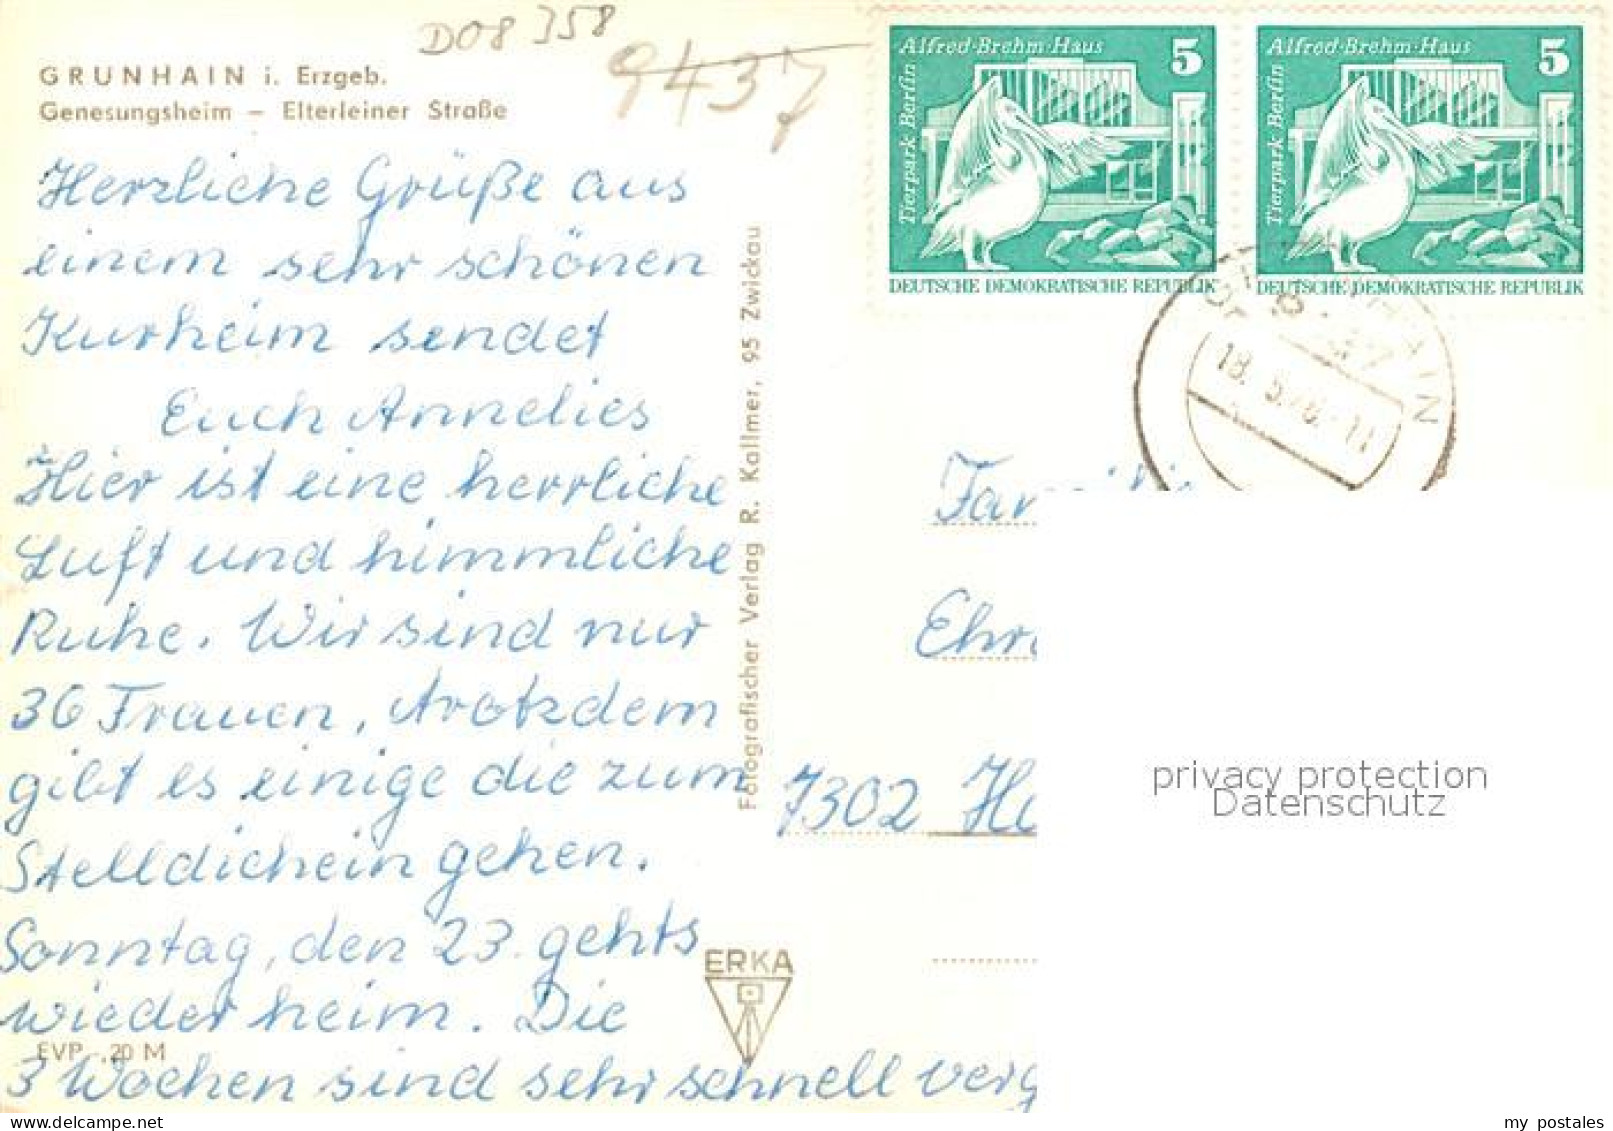 D08 358
9437
GRUNHAIN i. Erzgeb.
Genesungsheim – Elterleiner Straße
Herzliche Grüße aus
einem sehr schönen
Kurheim sendet
Euch Annelies
Hier ist eine herrliche
Luft und himmliche
Ruhe. Wir sind nur
36 Frauen, trotzdem
gibt es einige die zum
Stelldichein gehen.
Sonntag, den 23. gehts
wieder heim. Die
3 Wochen sind sehr schnell verg
EVP ,20 M
Fotografischer Verlag R. Kallmer, 95 Zwickau
ERKA
Alfred-Brehm-Haus 5
Tierpark Berlin
DEUTSCHE DEMOKRATISCHE REPUBLIK
Alfred-Brehm-Haus 5
Tierpark Berlin
DEUTSCHE DEMOKRATISCHE REPUBLIK
Familie
Ehr
7302 Ha
privacy protection
Datenschutz
www.delcampe.net
my_postales